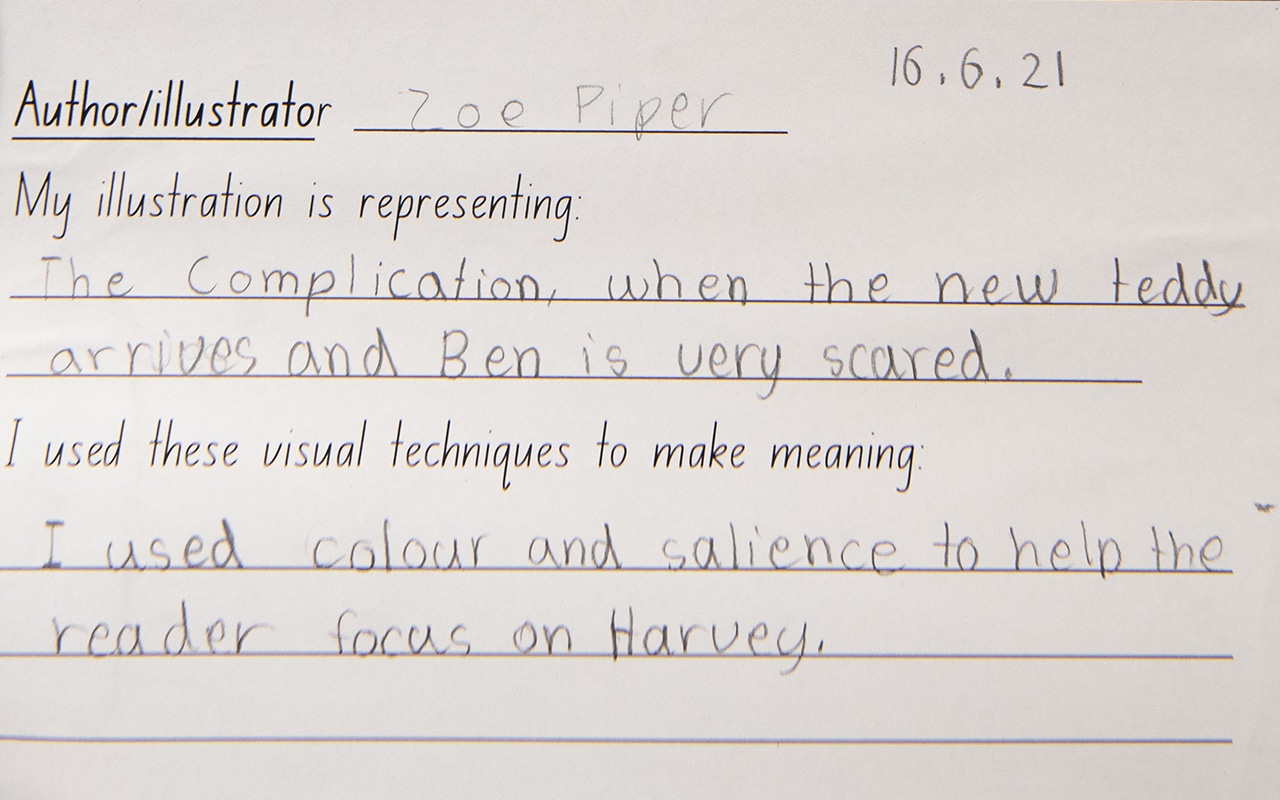 16.6.21
Author/illustrator Zoe Piper
My illustration is representing:
The Complication, when the new teddy
arrives and Ben is very scared.
I used these visual techniques to make meaning:
I used colour and salience to help the
reader focus on Harvey.